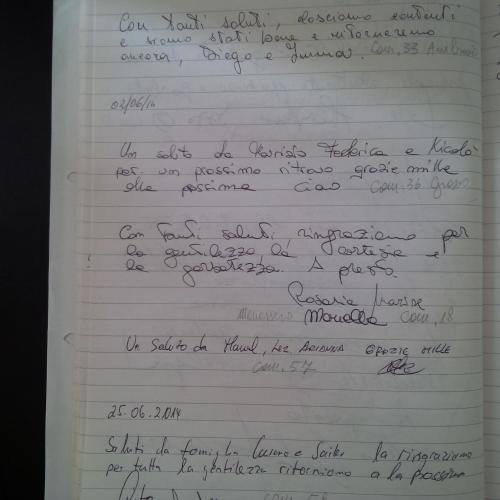 Con tanti saluti, lasciamo contenti
e siamo stati bene e ritorneremo
ancora, Diego e Imma. Cam. 33
02/06/14
Un saluto da Maurizio Federica e Nicolò
per un prossimo ritrovo grazie mille
alla prossima ciao Cam. 36
Con tanti saluti ringraziamo per
la gentilezza la cortesia e
la garbatezza. A presto.
Rosaria
Marialba cam. 18
Un saluto da Manuel, Luz Arianna GRAZIE MILLE
cam. 57
25.06.2014
Saluti da famiglia e la ringraziamo
per tutta la gentilezza ritorniamo a la prossima